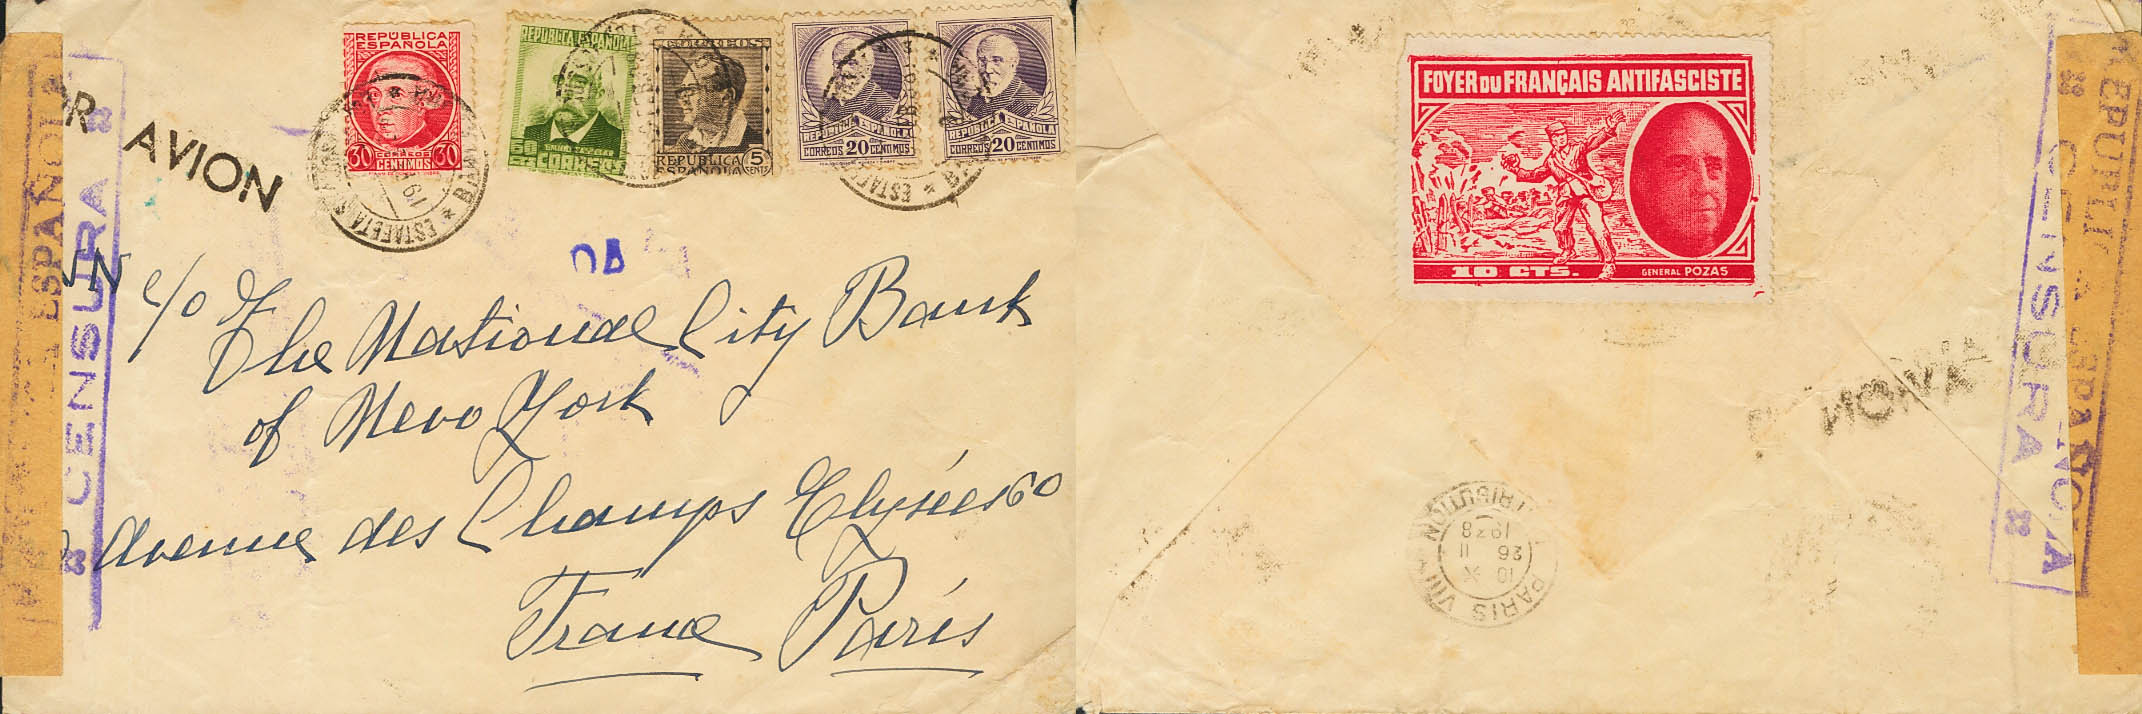 REPÚBLICA
ESPAÑOLA
30 CORREOS 30
CENTIMOS
REPÚBLICA ESPAÑOLA
50
CTS CORREOS
CORREOS
REPÚBLICA 5
ESPAÑOLA CENTS
REPÚBLICA ESPAÑOLA
CORREOS 20 CENTIMOS
REPÚBLICA ESPAÑOLA
CORREOS 20 CENTIMOS
ESTAFETA
ESTAFETA
AVION
ESPAÑOLA
CENSURA
c/o The National City Bank
of New York
Avenue des Champs Elysées 60
France Paris
FOYER DU FRANÇAIS ANTIFASCISTE
10 CTS.
GENERAL POZAS
REPUBLICA ESPAÑOLA
CENSURA
AVION
PARIS VIII DISTRIBUTION
10 X
26 II
1938